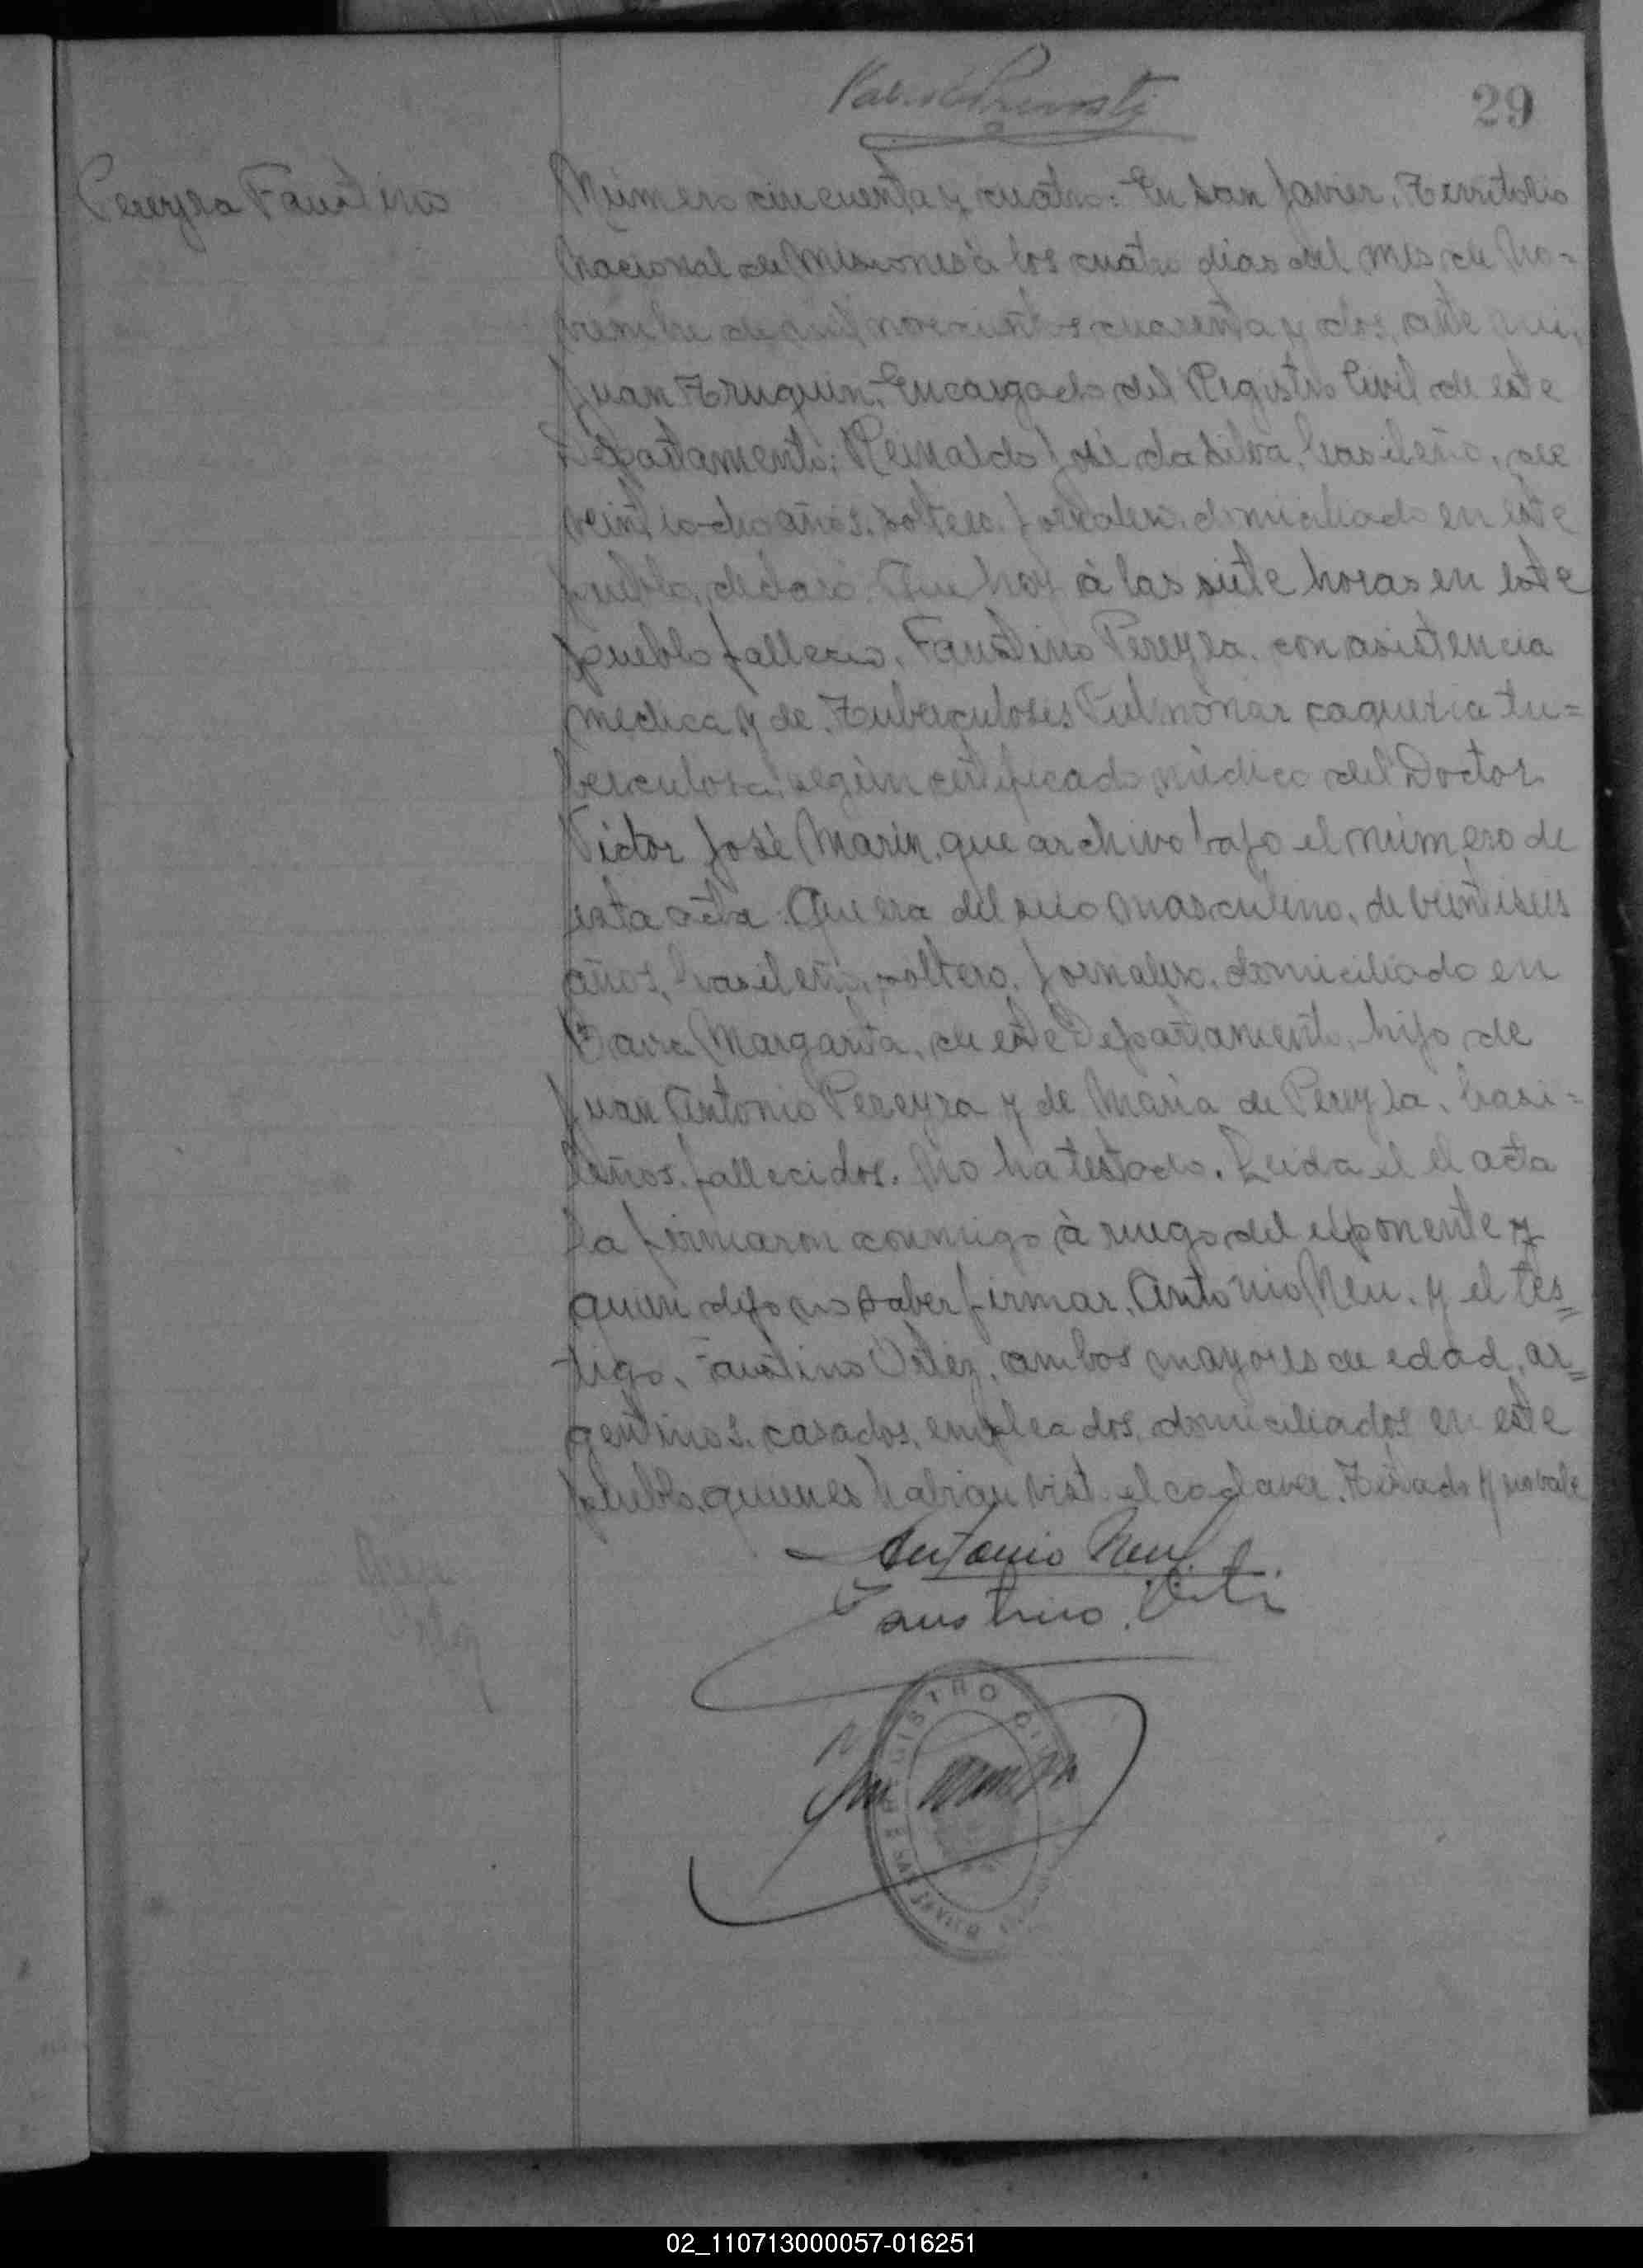 29
Pereyra Faustino
Número cincuenta y cuatro: En San Javier, Territorio
Nacional de Misiones á los cuatro dias del mes de No=
viembre de mil novecientos cuarenta y dos, ante mi,
Juan Truquin, Encargado del Registro Civil de este
Departamento; Reinaldo José da Silva, brasileño, de
años, soltero, jornalero, domiciliado en este
pueblo, declaró: Que hoy á las siete horas en este
pueblo fallecio, Faustino Pereyra, con asistencia
medica y de Tuberculosis Pulmonar caquexia tu=
berculosa, según certificado médico del Doctor
Victor José Marin, que archivo bajo el número de
esta acta. Que era del sexo masculino, de veintiseis
años, brasileño, soltero, jornalero, domiciliado en
Barra Margarita, de este Departamento, hijo de
Juan Antonio Pereyra y de Maria de Pereyra, brasi=
leños, fallecidos. No ha testado. Leida el el acta
la firmaron conmigo á ruego del exponente y
quien dijo no saber firmar, Antonio Neu, y el tes=
tigo, Faustino Ortiz, ambos mayores de edad, ar=
gentinos, casados, empleados, domiciliados en este
pueblo, quienes habian visto el cadaver. Testado y no vale
Antonio Neu
Faustino Ortiz
REGISTRO CIVIL
SAN JAVIER
02_110713000057-016251